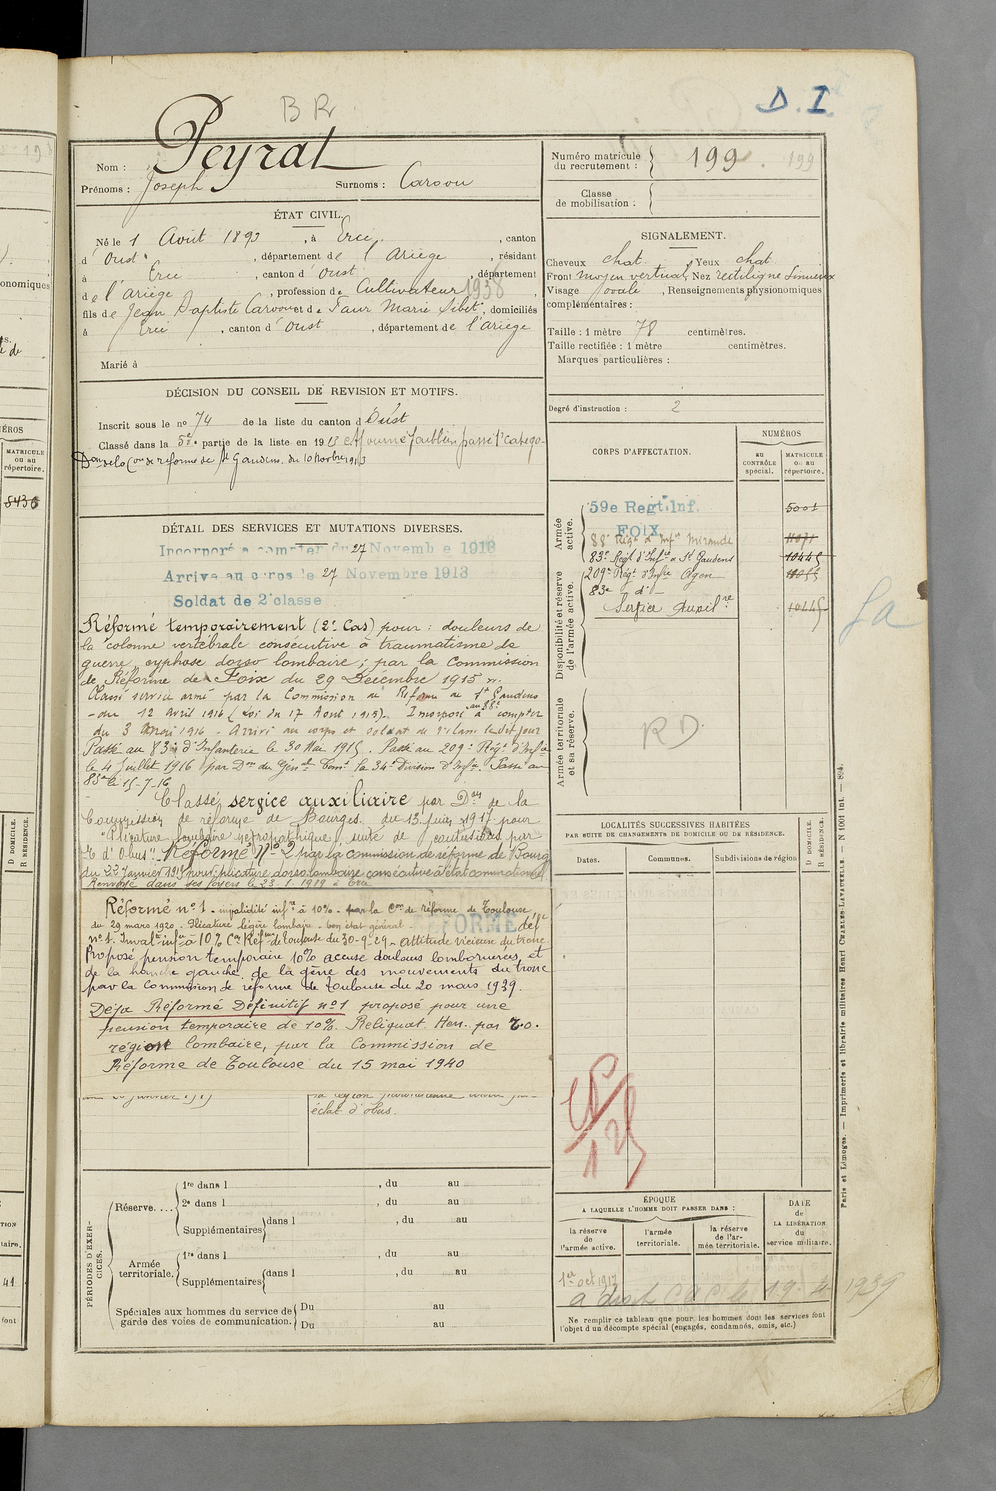 BR
D.I
Nom : Peyrat
Prénoms : Joseph Surnoms : Carvou
ÉTAT CIVIL.
Né le 1 Août 1893, à Ercé, canton
d'Oust, département de l'Ariège, résidant
à Ercé, canton d'Oust, département
de l'ariège, profession de Cultivateur 1938
fils de Jean Baptiste Carvou et de Faur Marie Sibet, domiciliés
à Ercé, canton d'Oust, département de l'ariège
Marié à
DÉCISION DU CONSEIL DE REVISION ET MOTIFS.
Inscrit sous le no 74 de la liste du canton d'Oust
Classé dans la 5e partie de la liste en 1913
de réforme de St Gaudens du 10
DÉTAIL DES SERVICES ET MUTATIONS DIVERSES.
Incorporé à compter du 27 Novembre 1913
Arrivé au corps le 27 Novembre 1913
Soldat de 2e classe
Réformé temporairement (2e Cas) pour : douleurs de
la colonne vertébrale consécutive à traumatisme de
guerre cyphose dorso lombaire ; par la Commission
de Réforme de Foix du 29 Décembre 1915
Classé service armé par la Commission de Réforme de St Gaudens
du 12 avril 1916 (Loi du 17 Août 1915). Incorporé au 88e à compter
du 3 Mai 1916 - Arrivé au corps et soldat de 2e classe le dit jour
Passé au 83e d'Infanterie le 30 Mai 1915. Passé au 209e Régt d'Infie
le 4 Juillet 1916 par Don du Génal Comt la 34e Division d'Infie. Passé au
83e le 15-7-16
Classé service auxiliaire par Don de la
Commission de réforme de Bourges du 13 juin 1917 pour
"Plicature lombaire névropathique, suite de contusions par
E. d'Obus". Réformé No 2 par la commission de réforme de Bourges
du 23 Janvier 1919 pour plicature dorso lombaire consécutive à état commotionnel
Renvoyé dans ses foyers le 23.1.1919 à Ercé
RÉFORMÉ
Réformé no 1 - invalidité infre à 10% - par la Con de réforme de Toulouse
du 29 mars 1920 - Plicature légère lombaire - bon état général - Réf déf
no 1. Inval. infre à 10% Con Réfme de Toulouse du 30-9-29 - attitude vicieuse du tronc
Proposé pension temporaire 10% accuse douleurs lombaires et
de la hanche gauche, de la gêne des mouvements du tronc
par la Commission de réforme de Toulouse du 20 mars 1939.
Déjà Réformé Définitif no 1 proposé pour une
pension temporaire de 10%. Reliquat
région lombaire, par la Commission de
Réforme de Toulouse du 15 mai 1940
éclat d'obus.
PÉRIODES D'EXERCICES.
Réserve....
1re dans l , du au
2e dans l , du au
Supplémentaires dans l , du au
Armée territoriale.
1re dans l , du au
Supplémentaires dans l , du au
Spéciales aux hommes du service de garde des voies de communication.
Du au
Du au
Numéro matricule du recrutement : 199 . 199
Classe de mobilisation :
SIGNALEMENT.
Cheveux chat. Yeux chat
Front moyen vertical, Nez rectiligne Sinueux
Visage ovale, Renseignements physionomiques
complémentaires :
Taille : 1 mètre 78 centimètres.
Taille rectifiée : 1 mètre centimètres.
Marques particulières :
Degré d'instruction : 2
CORPS D'AFFECTATION.
NUMÉROS
au CONTRÔLE spécial.
MATRICULE ou au répertoire.
Armée active.
59e Regt. Inf.
FOIX
88e Régt d'Infie Mirande
83e Régt d'Infie à St Gaudens 10445
Disponibilité et réserve de l'armée active.
209e Régt d'Infie Agen
83e d°
Service Auxilre 10445
Armée territoriale et sa réserve.
RD
LOCALITÉS SUCCESSIVES HABITÉES
PAR SUITE DE CHANGEMENTS DE DOMICILE OU DE RÉSIDENCE.
Dates.
Communes.
Subdivisions de région
D DOMICILE.
R RÉSIDENCE.
ÉPOQUE
A LAQUELLE L'HOMME DOIT PASSER DANS :
la réserve de l'armée active.
l'armée territoriale.
la réserve de l'armée territoriale.
DATE de LA LIBÉRATION du service militaire.
1er oct 1917
a droit C d C le 19.4.1939
Ne remplir ce tableau que pour les hommes dont les services font
l'objet d'un décompte spécial (engagés, condamnés, omis, etc.)
Paris et Limoges. — Imprimerie et librairie militaires Henri CHARLES-LAVAUZELLE. — N 1001 int. — 894.